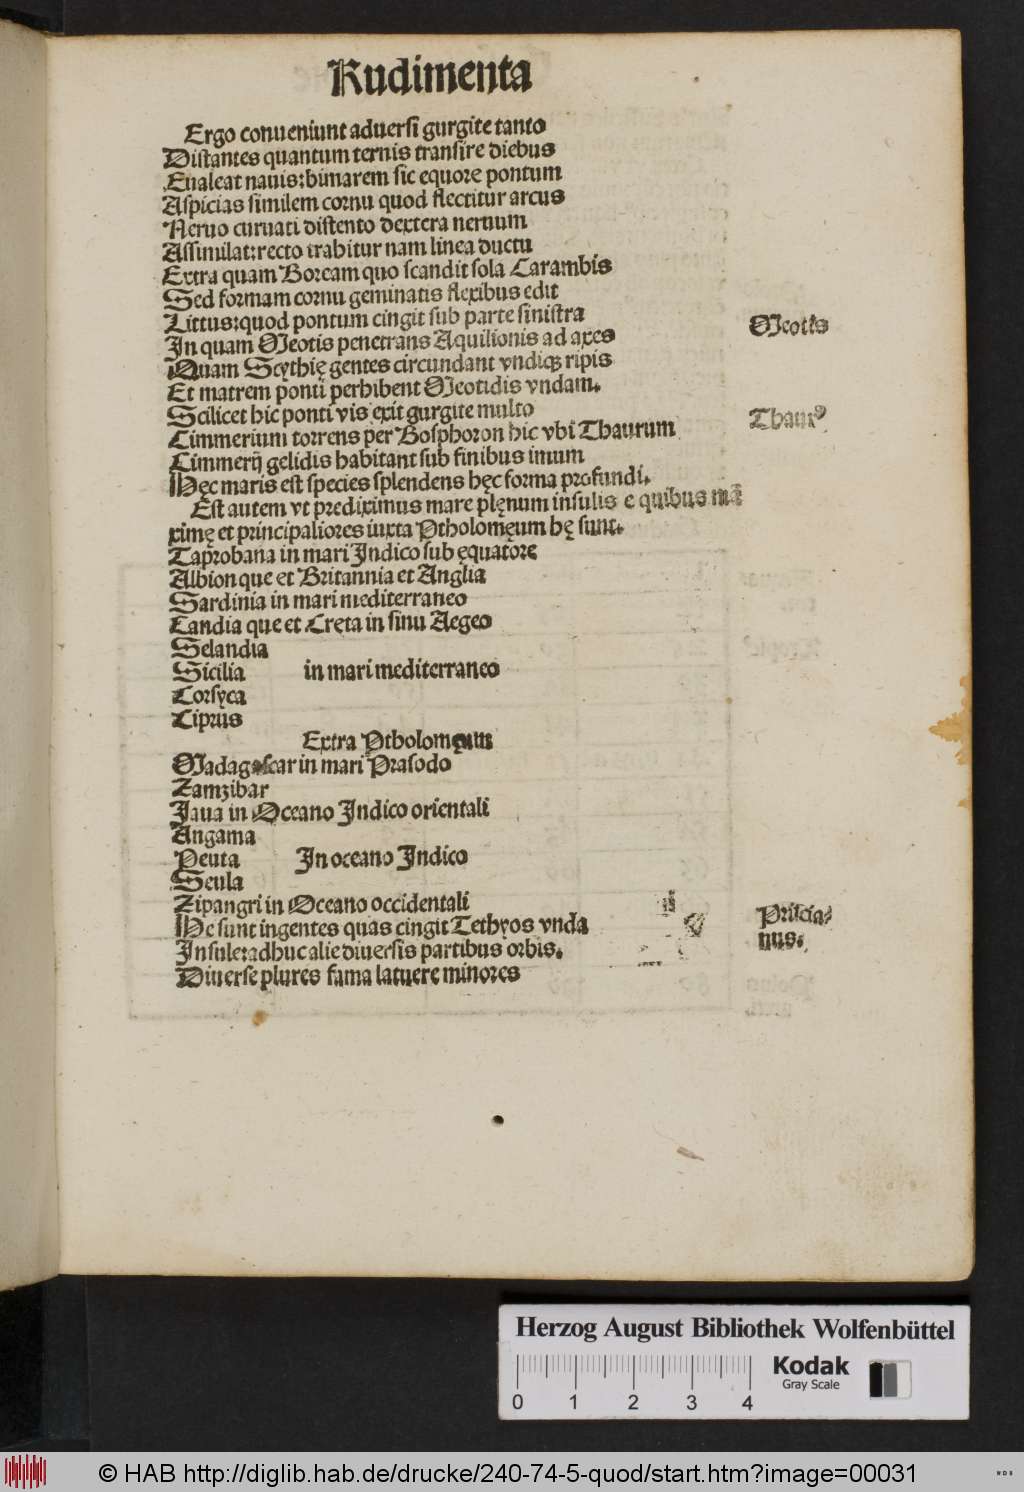 Rudimenta
Ergo conueniunt aduersi gurgite tanto
Distantes quantum ternis transire diebus
Eualeat nauis: bimarem sic equore pontum
Aspicias similem cornu quod flectitur arcus
Neruo curuati distento dextera neruum
Assimilat: recto trabitur nam linea ductu
Extra quam Boream quo scandit sola Carambis
Sed formam cornu geminatis flexibus edit
Littus: quod pontum cingit sub parte sinistra
In quam Meotis penetrans Aquilionis ad axes
Meotis
Quam Scythię gentes circundant vndiqꝫ ripis
Et matrem ponti perhibent Meotidis vndam.
Scilicet hic ponti vis exit gurgite multo
Thaurꝰ
Cimmerium torrens per Bosphoron hic vbi Thaurum
Cimmerij gelidis habitant sub finibus imum
Hęc maris est species splendens hęc forma profundi.
Est autem vt prediximus mare plęnum insulis e quibus ma
ximę et principaliores iuxta Ptholomęum hę sunt.
Taprobana in mari Indico sub ęquatore
Albion que et Britannia et Anglia
Sardinia in mari mediterraneo
Candia que et Cręta in sinu Aegeo
Selandia
Sicilia in mari mediterraneo
Corsyca
Ciprus
Extra Ptholomęum
Madagascar in mari Prasodo
Zamzibar
Iaua in Oceano Indico orientali
Angama
Peuta In oceano Indico
Seula
Zipangri in Oceano occidentali
He sunt ingentes quas cingit Tethyos vnda
Priscia-
nus.
Insule: adhuc alie diuersis partibus orbis.
Diuerse plures fama latuere minores
Herzog August Bibliothek Wolfenbüttel
Kodak
Gray Scale
0 1 2 3 4
© HAB http://diglib.hab.de/drucke/240-74-5-quod/start.htm?image=00031